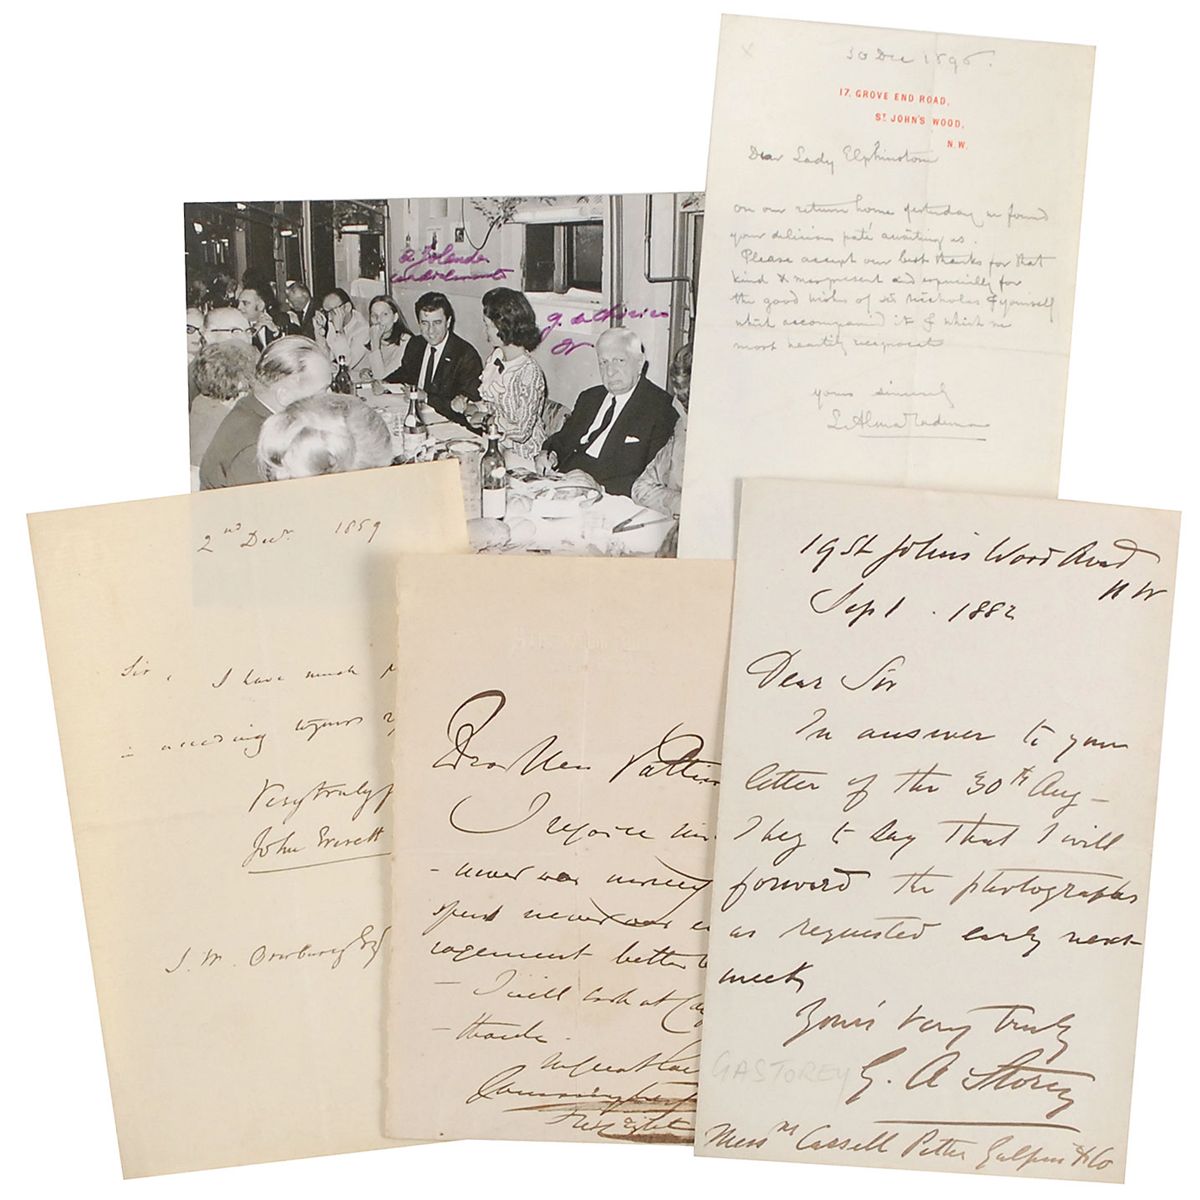 30 Dec 1896.
17, GROVE END ROAD,
ST JOHN'S WOOD,
N.W.
Dear Lady Elphinstone
on our return home yesterday we found
your delicious paté awaiting us.
Please accept our best thanks for that
kind Xmas present and especially for
the good wishes of Sir Nicholas & yourself
which accompanied it & which we
most heartily reciprocate
yours sincerely
L Alma Tadema
a Yolanda
g. de Chirico
2nd Decr. 1859
Sir, I have much
in acceding to your
Very truly
John Everett
Dear
I rejoice
- never was money
spent never was
better
- I will look at
19 St John's Wood Road
N W
Sep 1. 1882
Dear Sir
In answer to your
letter of the 30th Aug -
I beg to say that I will
forward the photographs
as requested early next
week
Yours very truly
G. A Storey
GASTOREY
Messrs Cassell Petter Galpin & Co